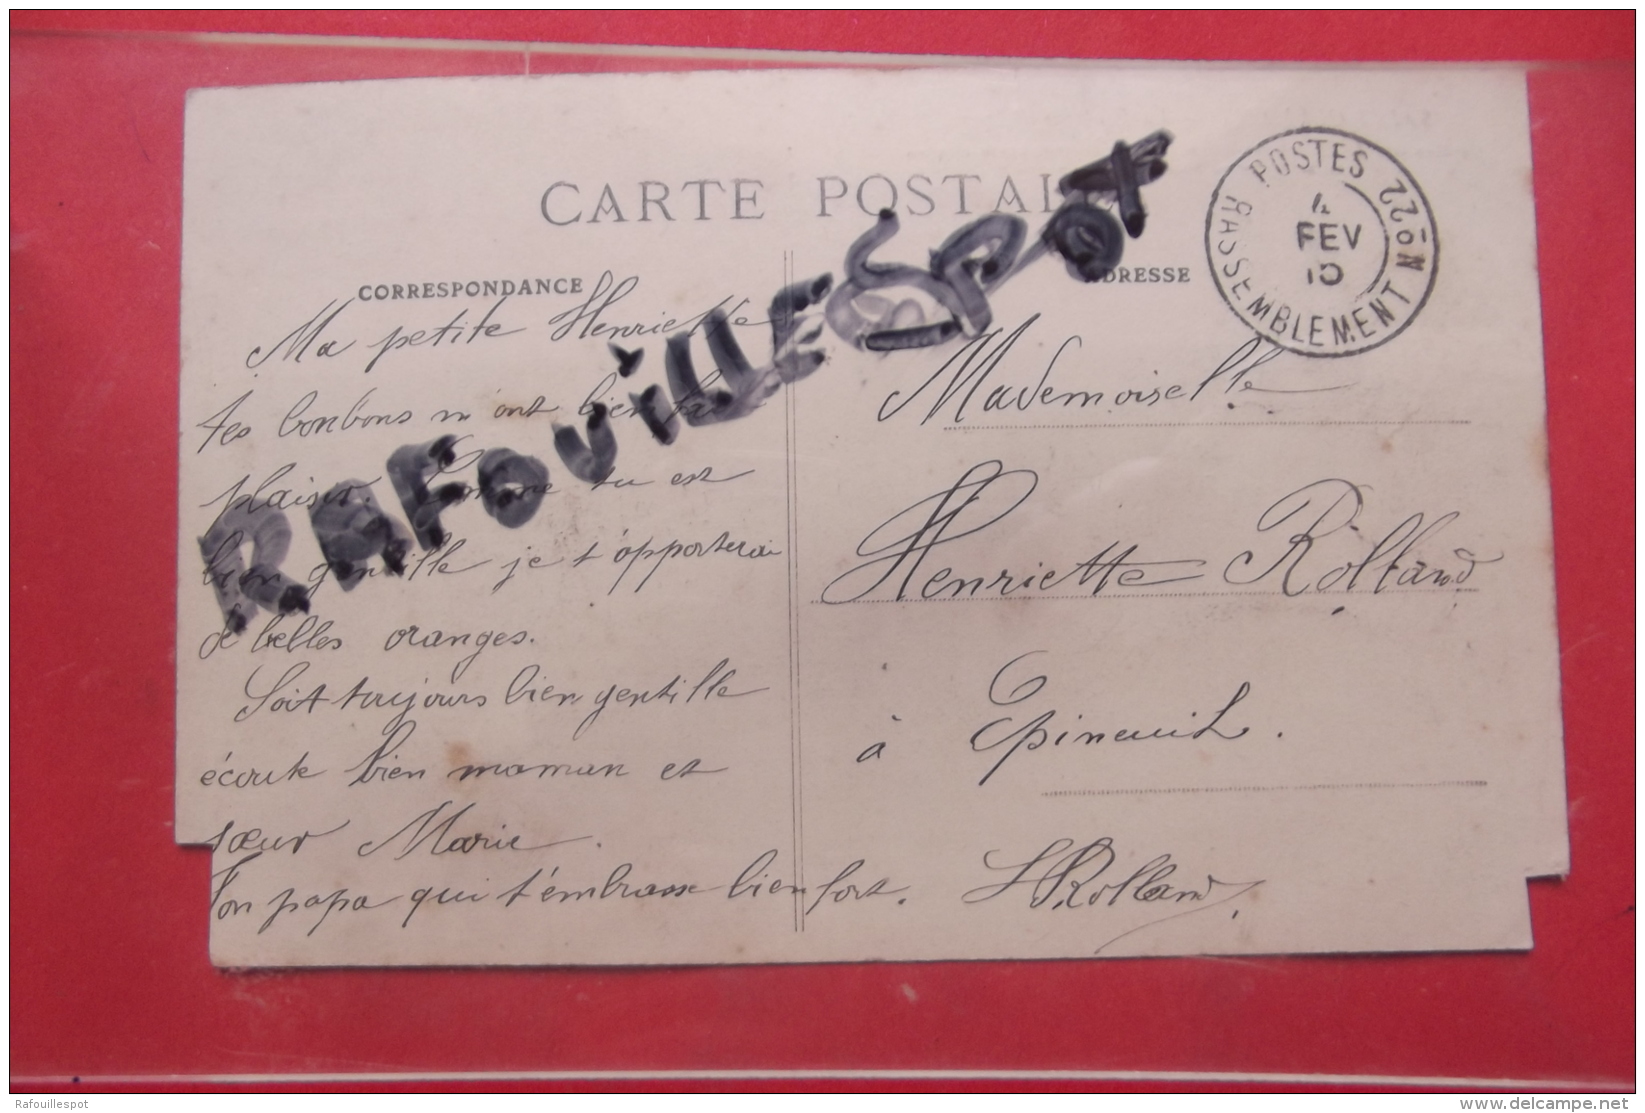 CARTE POSTALE
CORRESPONDANCE
ADRESSE
POSTES 22ÔN
4
FEV
10
RASSEMBLEMENT
RAFOUILLESPOT
Ma petite Henriette
tes bonbons m'ont bien fait
plaisir. Comme tu est
bien gentille je t'apporterai
de belles oranges.
Soit toujours bien gentille
écoute bien maman et
sœur Marie.
Ton papa qui t'embrasse bien fort.
Mademoiselle
Henriette Rolland
à Epineuil.
Rolland
Rafouillespot
www.delcampe.net